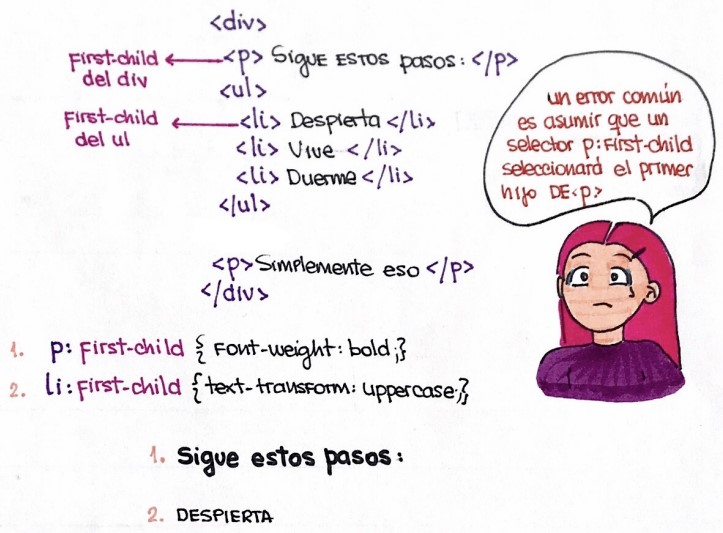 <div>
First-child
del div
<p> Sigue estos pasos: </p>
<ul>
First-child
del ul
<li> Despierta </li>
<li> Vive </li>
<li> Duerme </li>
</ul>
<p> Simplemente eso </p>
</div>
un error común
es asumir que un
selector p:First-child
seleccionará el primer
hijo DE <p>
1. p: First-child { Font-weight: bold;}
2. li: First-child {text-transform: uppercase;}
1. Sigue estos pasos:
2. DESPIERTA